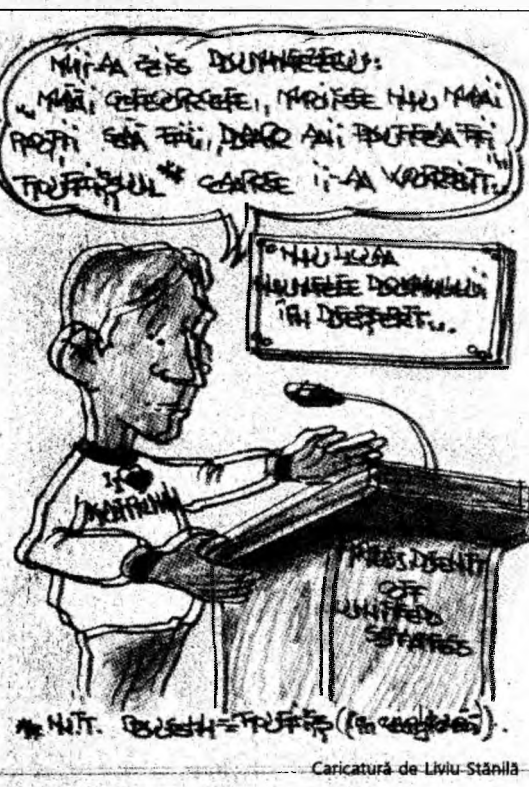 MI-A ZIS DUMNEZEU:
„MĂI, GEORGE, MOISE NU MAI
POȚI SĂ FII, DAR AI PUTEA FI
TUFIȘUL* CARE I-A VORBIT."
NU LUA
NUMELE DOMNULUI
ÎN DEȘERT...
I
PRESIDENT
OF
UNITED
STATES
* N.T. BUSH = TUFIȘ (în engleză).
Caricatură de Liviu Stănilă